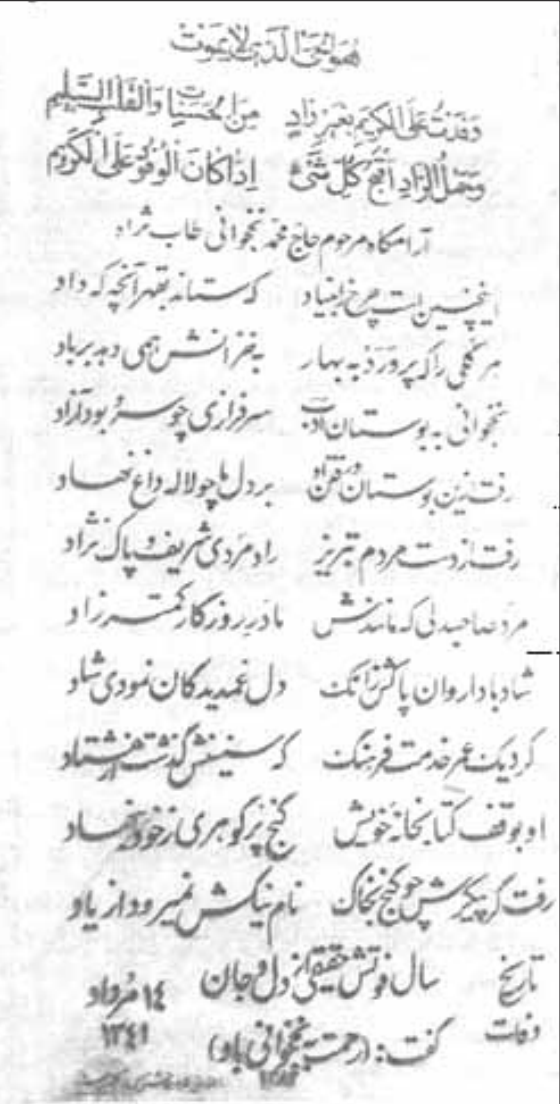 هو الحی الذی لا یموت
وفدت علی الکریم بغیر زاد من الحسنات والقلب السلیم
وحمل الزاد اقبح کل شیء اذا کان الوفود علی الکریم
آرامگاه مرحوم حاج محمد نخجوانی طاب ثراه
اینچنین است چرخ را بنیاد که ستاند بقهر آنچه که داد
هر گلی را که پرورد به بهار به خزانش همی دهد بر باد
نخجوانی به بوستان ادب سرفرازی چو سرو بود آزاد
رفت ازین بوستان و فقدان او بر دل ها چو لاله داغ نهاد
رفت از دست مردم تبریز راد مردی شریف و پاک نژاد
مرد صاحبدلی که مانندش مادر روزگار کمتر زاد
شاد باد آن روان پاکش زانک دل غمدیدگان نمودی شاد
کرد یک عمر خدمت فرهنگ که سنینش گذشت از هشتاد
او بوقف کتابخانه خویش گنج پر گوهری ز خود بنهاد
رفت گر پیکرش چو گنج بخاک نام نیکش نمیرود از یاد
تاریخ وفات سال فوتش حقیقی از دل و جان ١٤ مرداد
گفت: (رحمت به نخجوانی باد) ١٣٤١
١٣٨٢